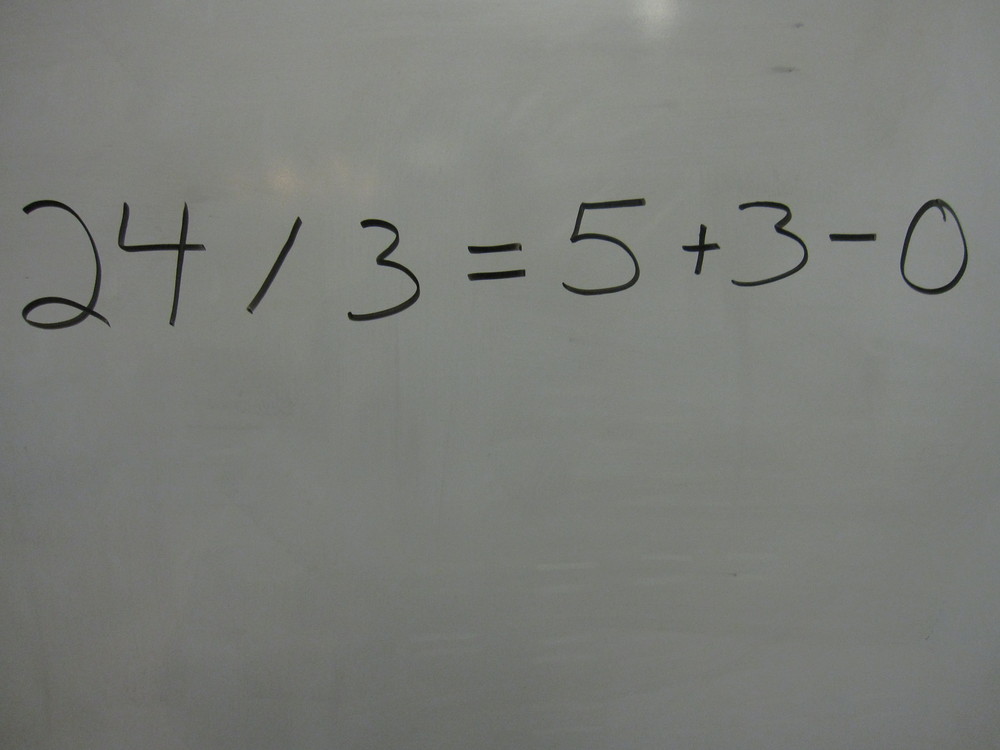 24 / 3 = 5 + 3 - 0